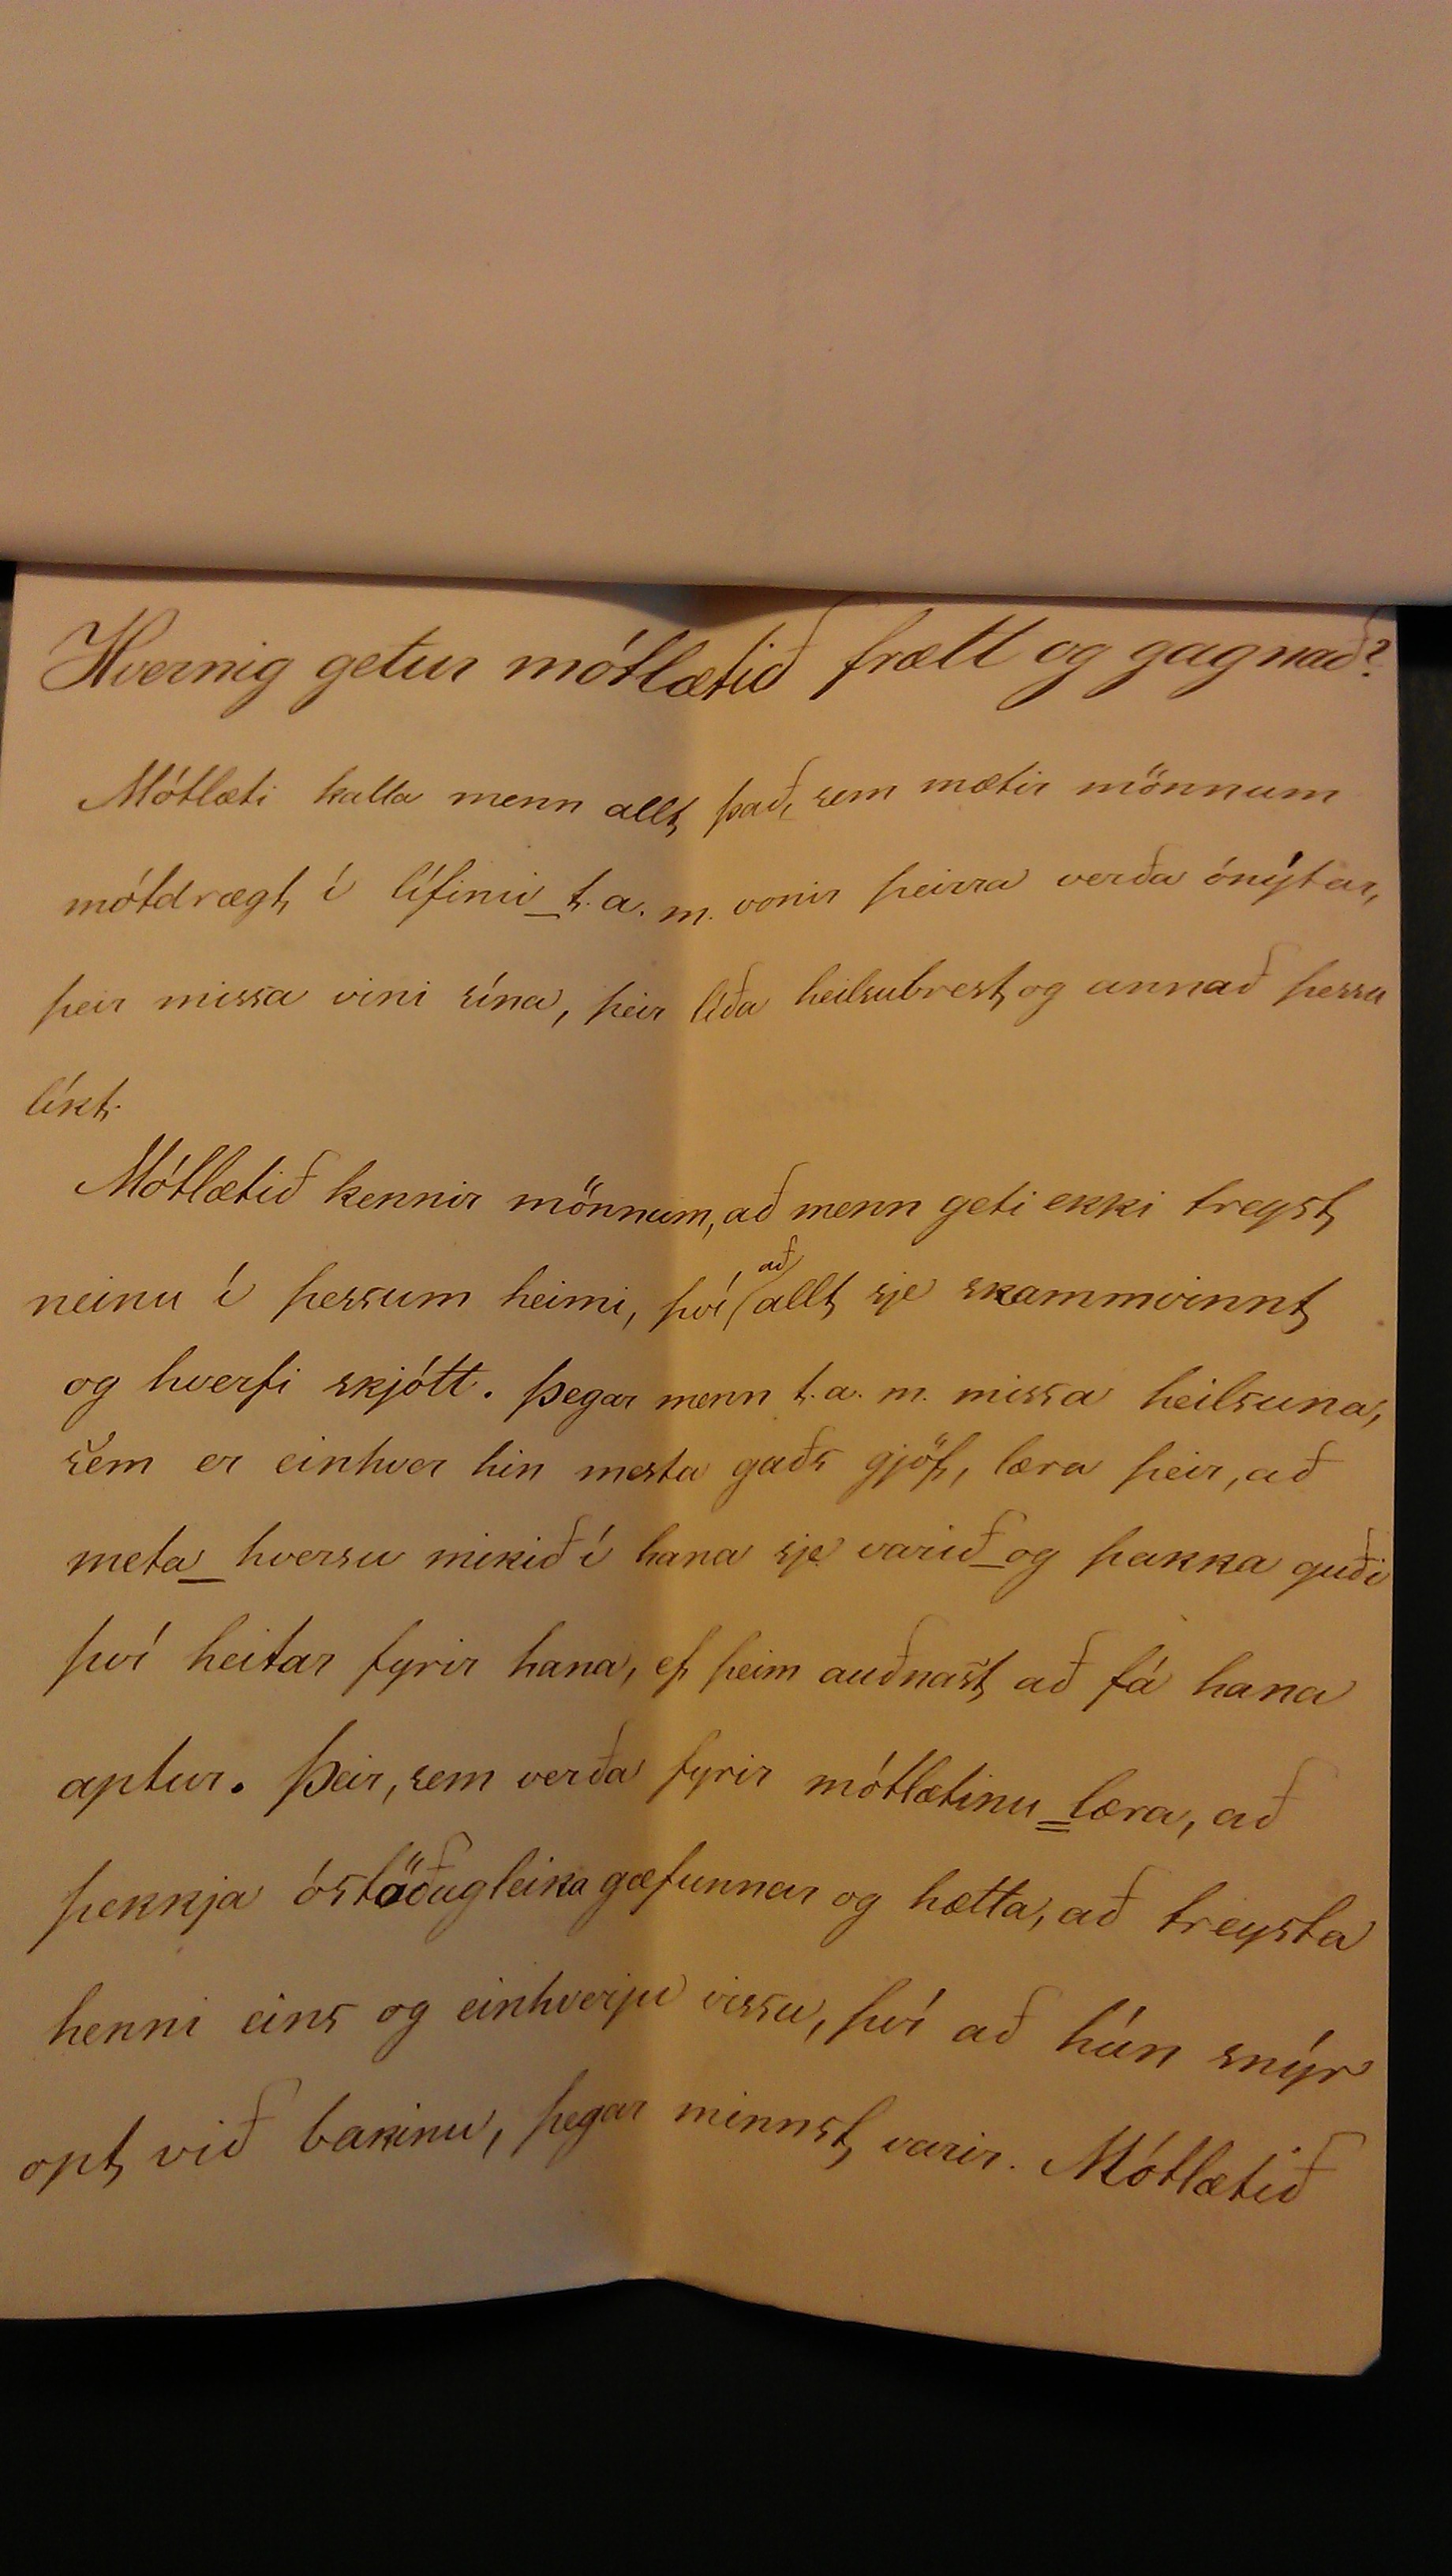 Hvernig getur mótlætið frætt og gagnað?
Mótlæti kalla menn allt það, sem mætir mönnum
mótdrægt í lífinu_t.a.m. vonir þeirra verða ónýtar,
þeir missa vini sína, þeir líða heilsubrest og annað þessu
líkt.
Mótlætið kennir mönnum, að menn geti ekki treyst
neinu í þessum heimi, því að allt sje skammvinnt
og hverfi skjótt. Þegar menn t.a.m. missa heilsuna,
sem er einhver hin mesta guðs gjöf, læra þeir, að
meta_hversu mikið í hana sje varið_og þakka guði
því heitar fyrir hana, ef þeim auðnast að fá hana
aptur. Þeir, sem verða fyrir mótlætinu_læra, að
þekkja óstöðugleika gæfunnar og hætta, að treysta
henni eins og einhverju vissu, því að hún snýr
opt við bakinu, þegar minnst varir. Mótlætið